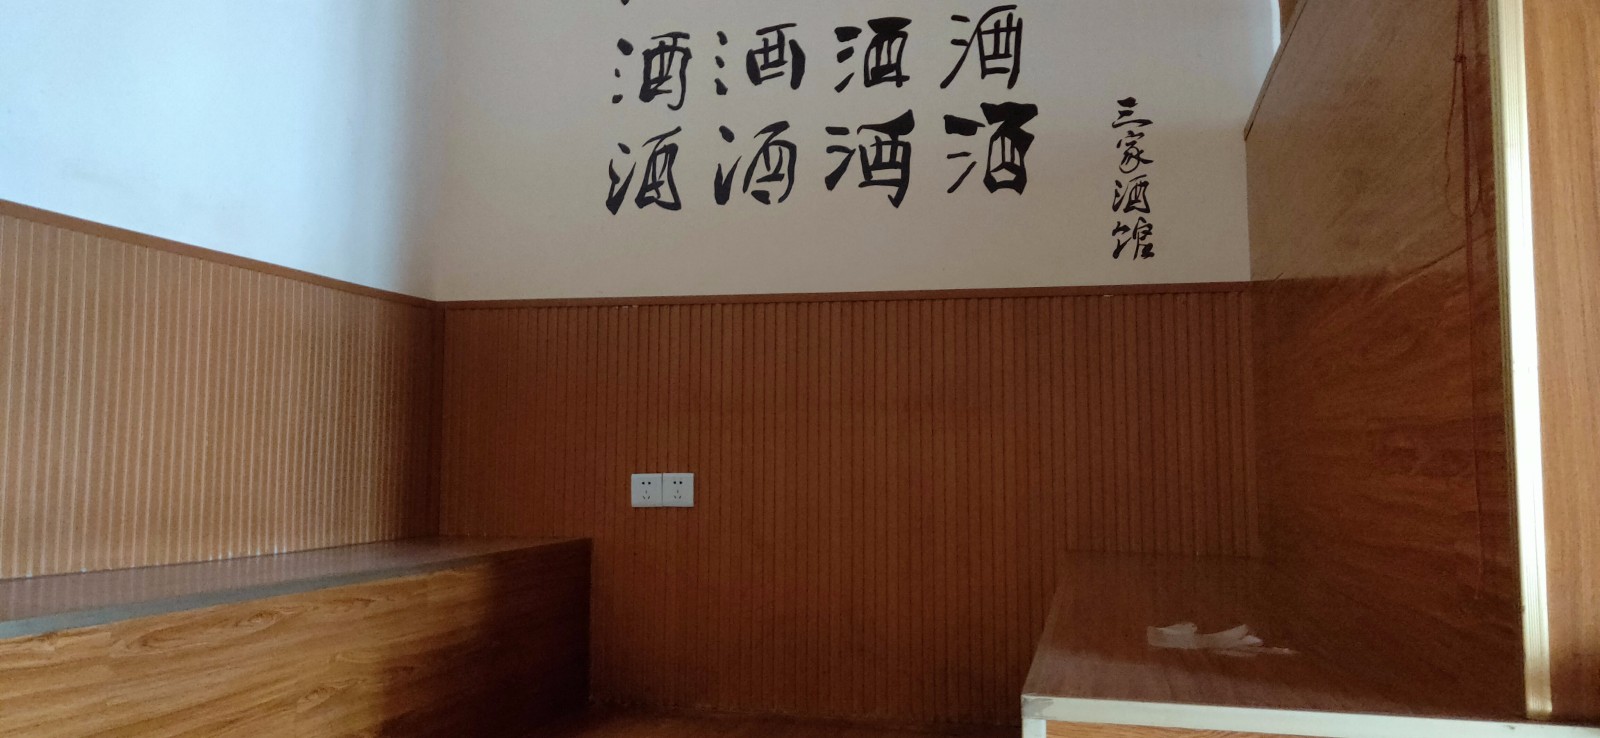 酒酒酒酒
酒酒酒酒
三家酒馆